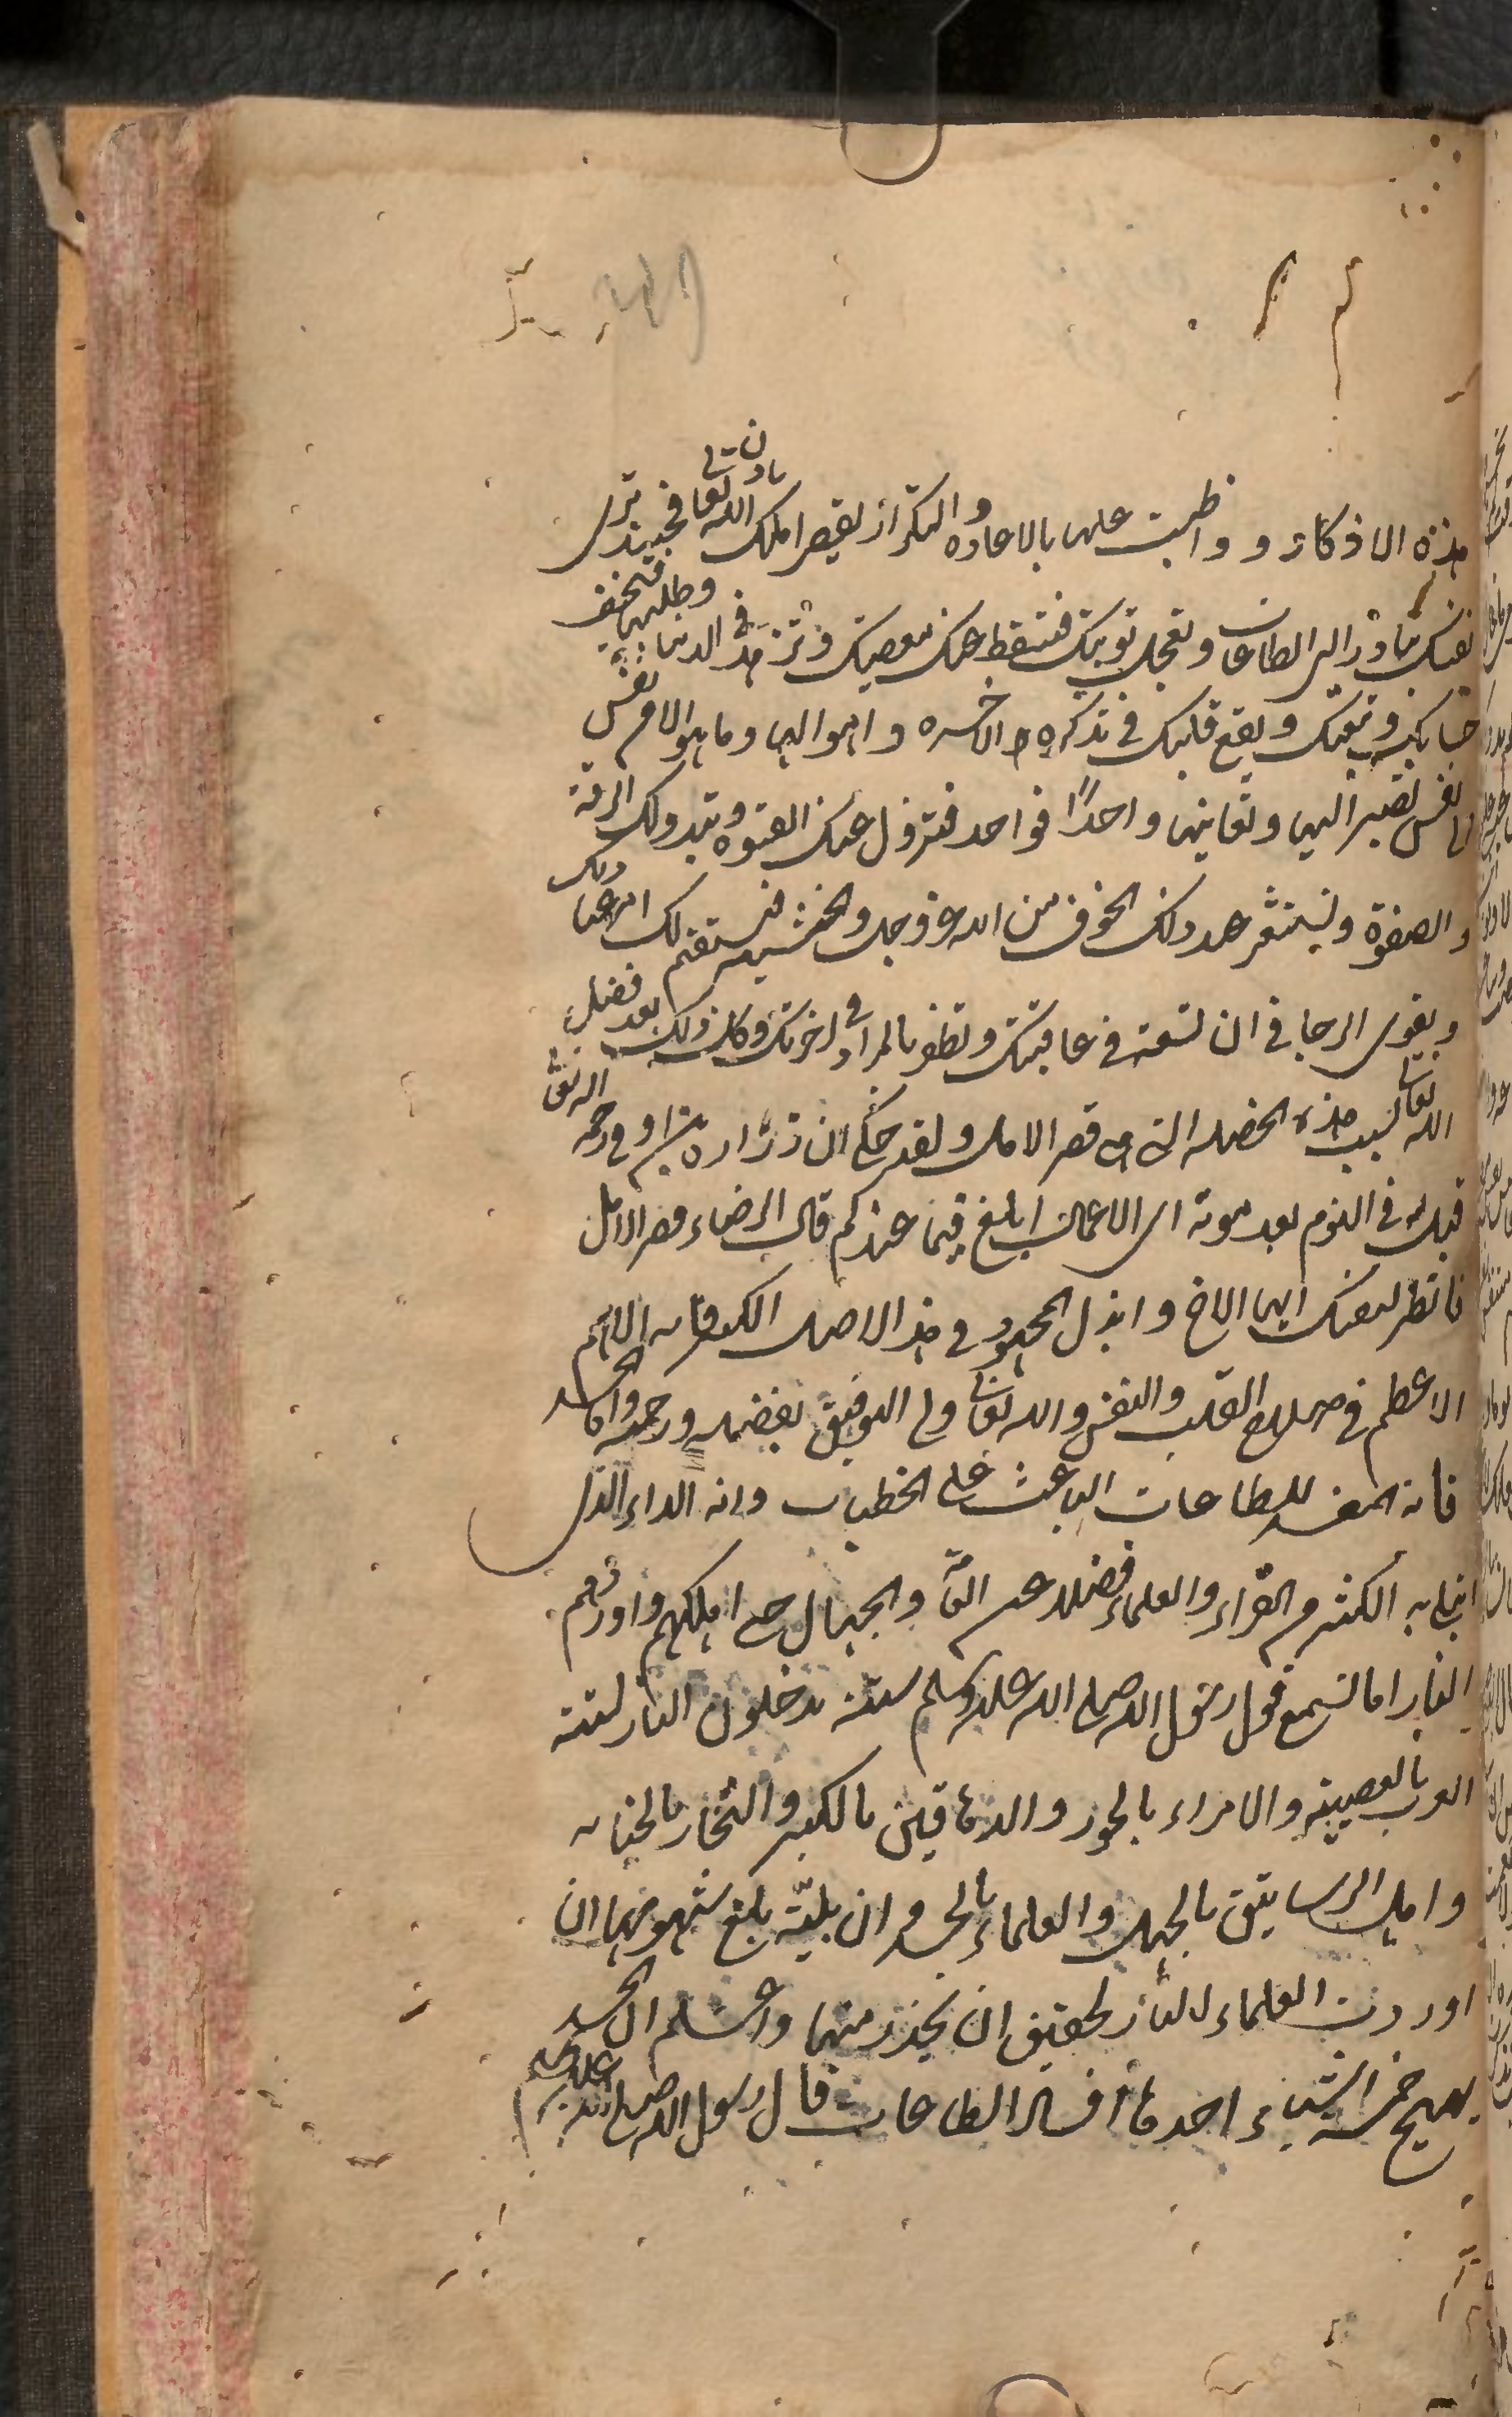 هذه الاذكار و واظبت عليها بالاعاده والتكرار لقصر املك باذن الله تعالى فحينئذ ترى
نفسك تبادر الى الطاعات وتعجل توبتك فتسقط عنك معصيتك وتزهد في الدنيا وطلبها فتخف
حسابك وتبعتك ويقع قلبك في تذكره الاخره واهوالها وما هو الا من نفس
الى نفس تصير اليها وتعاينها واحدًا فواحد فتزول عنك القسوه وتبدو لك الرقة
والصفوة وتستشعر عند ذلك الخوف من الله عز وجل والخشيه فيستقيم لك امر عبادتك
ويقوى الرجا في ان تسعد في عاقبتك وتظفر بالمراد في اخرتك وكل ذلك بعد فضل
الله تعالى بسبب هذه الخصله التى هى قصر الامل ولقد حكى ان زراره بن اوفى رحمه الله تعالى
قيل له في النوم بعد موته اى الاعمال ابلغ فيما عندكم قال الرضاء وقصر الامل
فانظر لنفسك ايها الاخ وابذل المجهود في هذا الاصل الكبير فانه الاهم
الاعظم في صلاح القلب والنفس والله تعالى ولى التوفيق بفضله ورحمته واما الحسد
فانه المفسد للطاعات الباعث على الخطيات وانه الداء الذى
ابتلى به الكثير من القراء والعلماء فضلا عن العامة والجهال حتى اهلكهم واوردهم
النار اما تسمع قول رسول الله صلى الله عليه وسلم ستة يدخلون النار لستة
العرب بالعصبية والامراء بالجور والدهاقين بالكبر والتجار بالخيانه
واهل الرساتيق بالجهل والعلماء بالحسد وان بلية بلغ شومها ان
اوردت العلماء النار لحقيق ان يحذر منها واعلم ان الحسد
يهيج خمسة اشياء احدها افساد الطاعات قال رسول الله صلى الله عليه وسلم